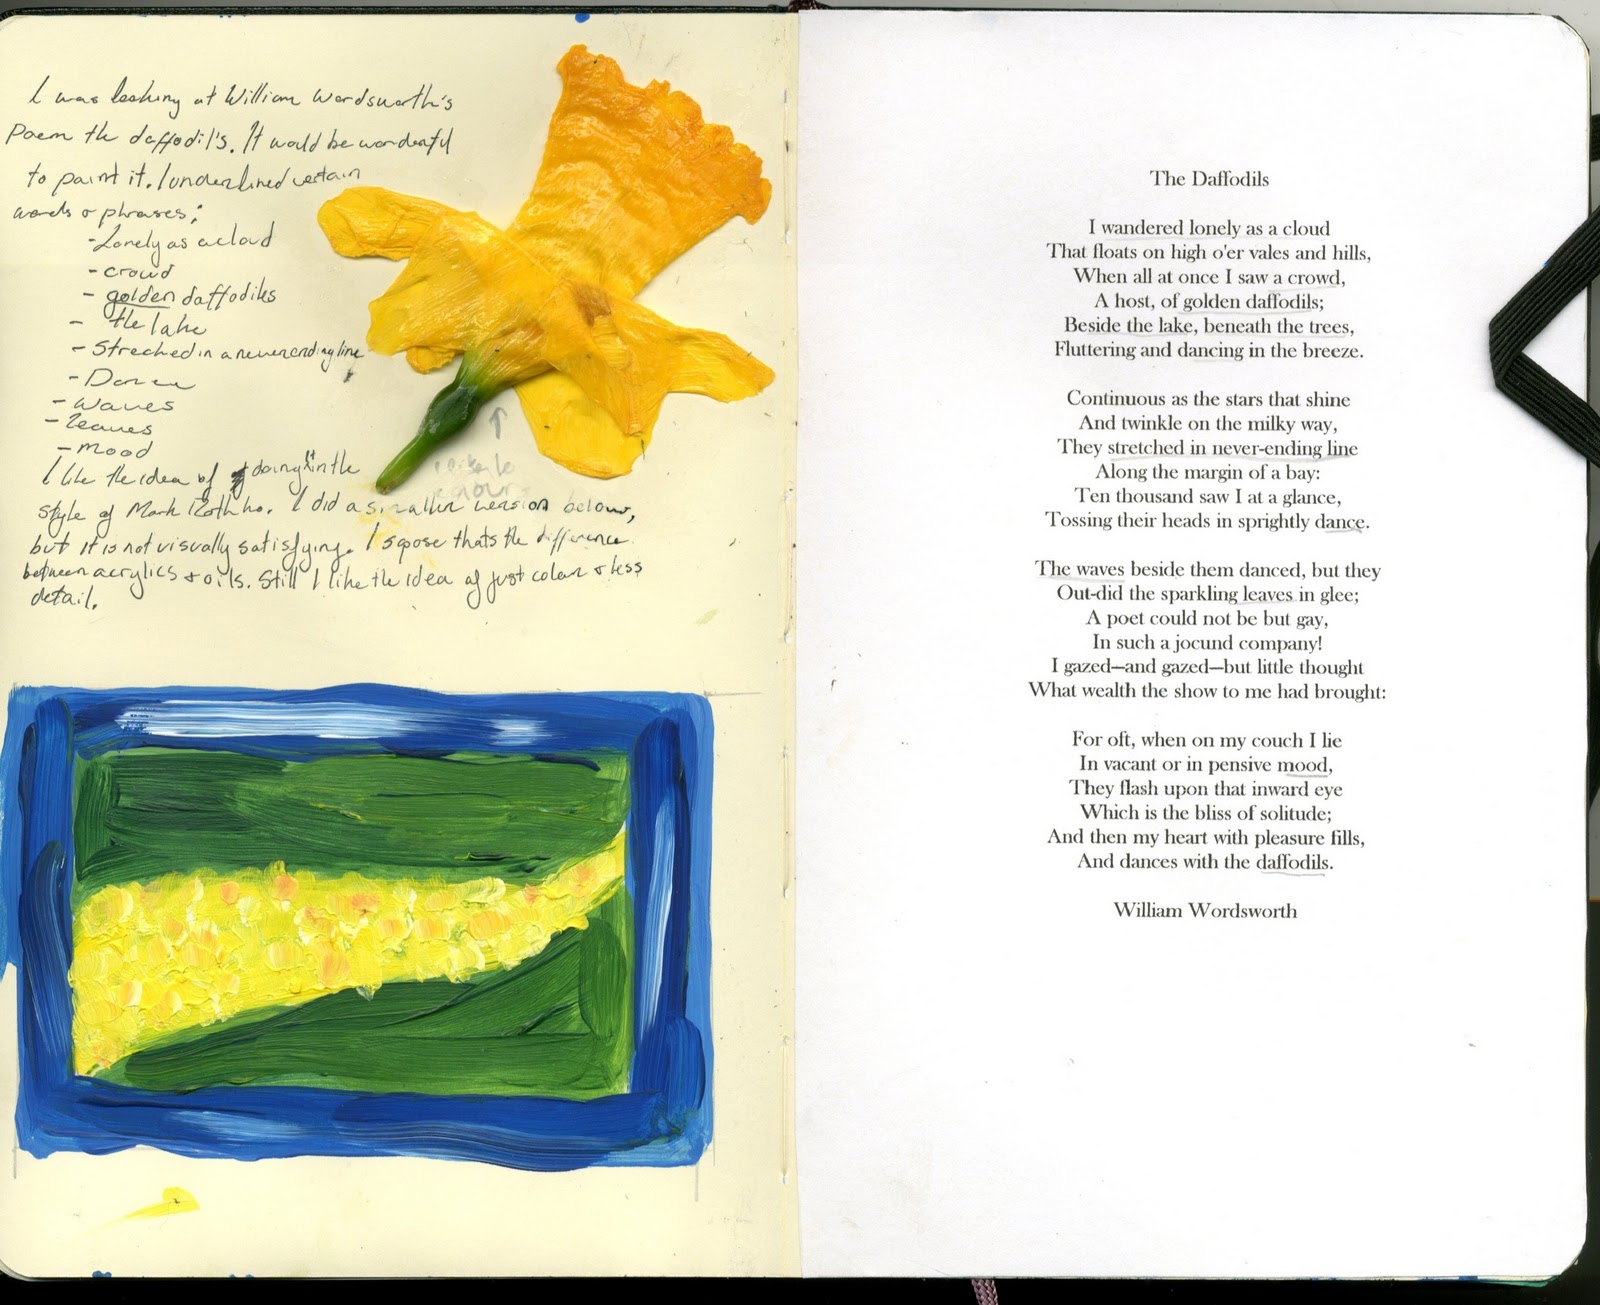 I was looking at William Wordsworth's
Poem the daffodil's. It would be wonderful
to paint it. I underlined certain
words or phrases:
- Lonely as a cloud
- crowd
- golden daffodiles
- the lake
- Streched in a never ending line
- Dance
- Waves
- leaves
- mood
I like the idea of doing it in the
style of Mark Rothko. I did a smaller version below,
but it is not visually satisfying. I spose thats the difference
between acrylics & oils. Still I like the idea of just colour & less
detail.
The Daffodils
I wandered lonely as a cloud
That floats on high o'er vales and hills,
When all at once I saw a crowd,
A host, of golden daffodils;
Beside the lake, beneath the trees,
Fluttering and dancing in the breeze.
Continuous as the stars that shine
And twinkle on the milky way,
They stretched in never-ending line
Along the margin of a bay:
Ten thousand saw I at a glance,
Tossing their heads in sprightly dance.
The waves beside them danced, but they
Out-did the sparkling leaves in glee;
A poet could not be but gay,
In such a jocund company!
I gazed—and gazed—but little thought
What wealth the show to me had brought:
For oft, when on my couch I lie
In vacant or in pensive mood,
They flash upon that inward eye
Which is the bliss of solitude;
And then my heart with pleasure fills,
And dances with the daffodils.
William Wordsworth